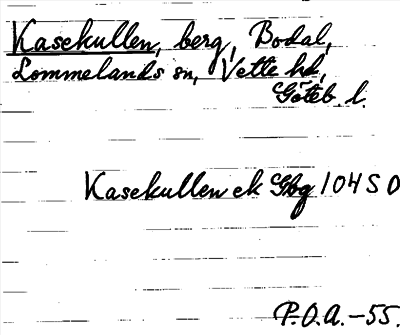 Kasekullen, berg, Bodal,
Lommelands sn, Vette hd,
Göteb. l.
Kasekullen ek Gbg 104 SO
P.O.A. -55.